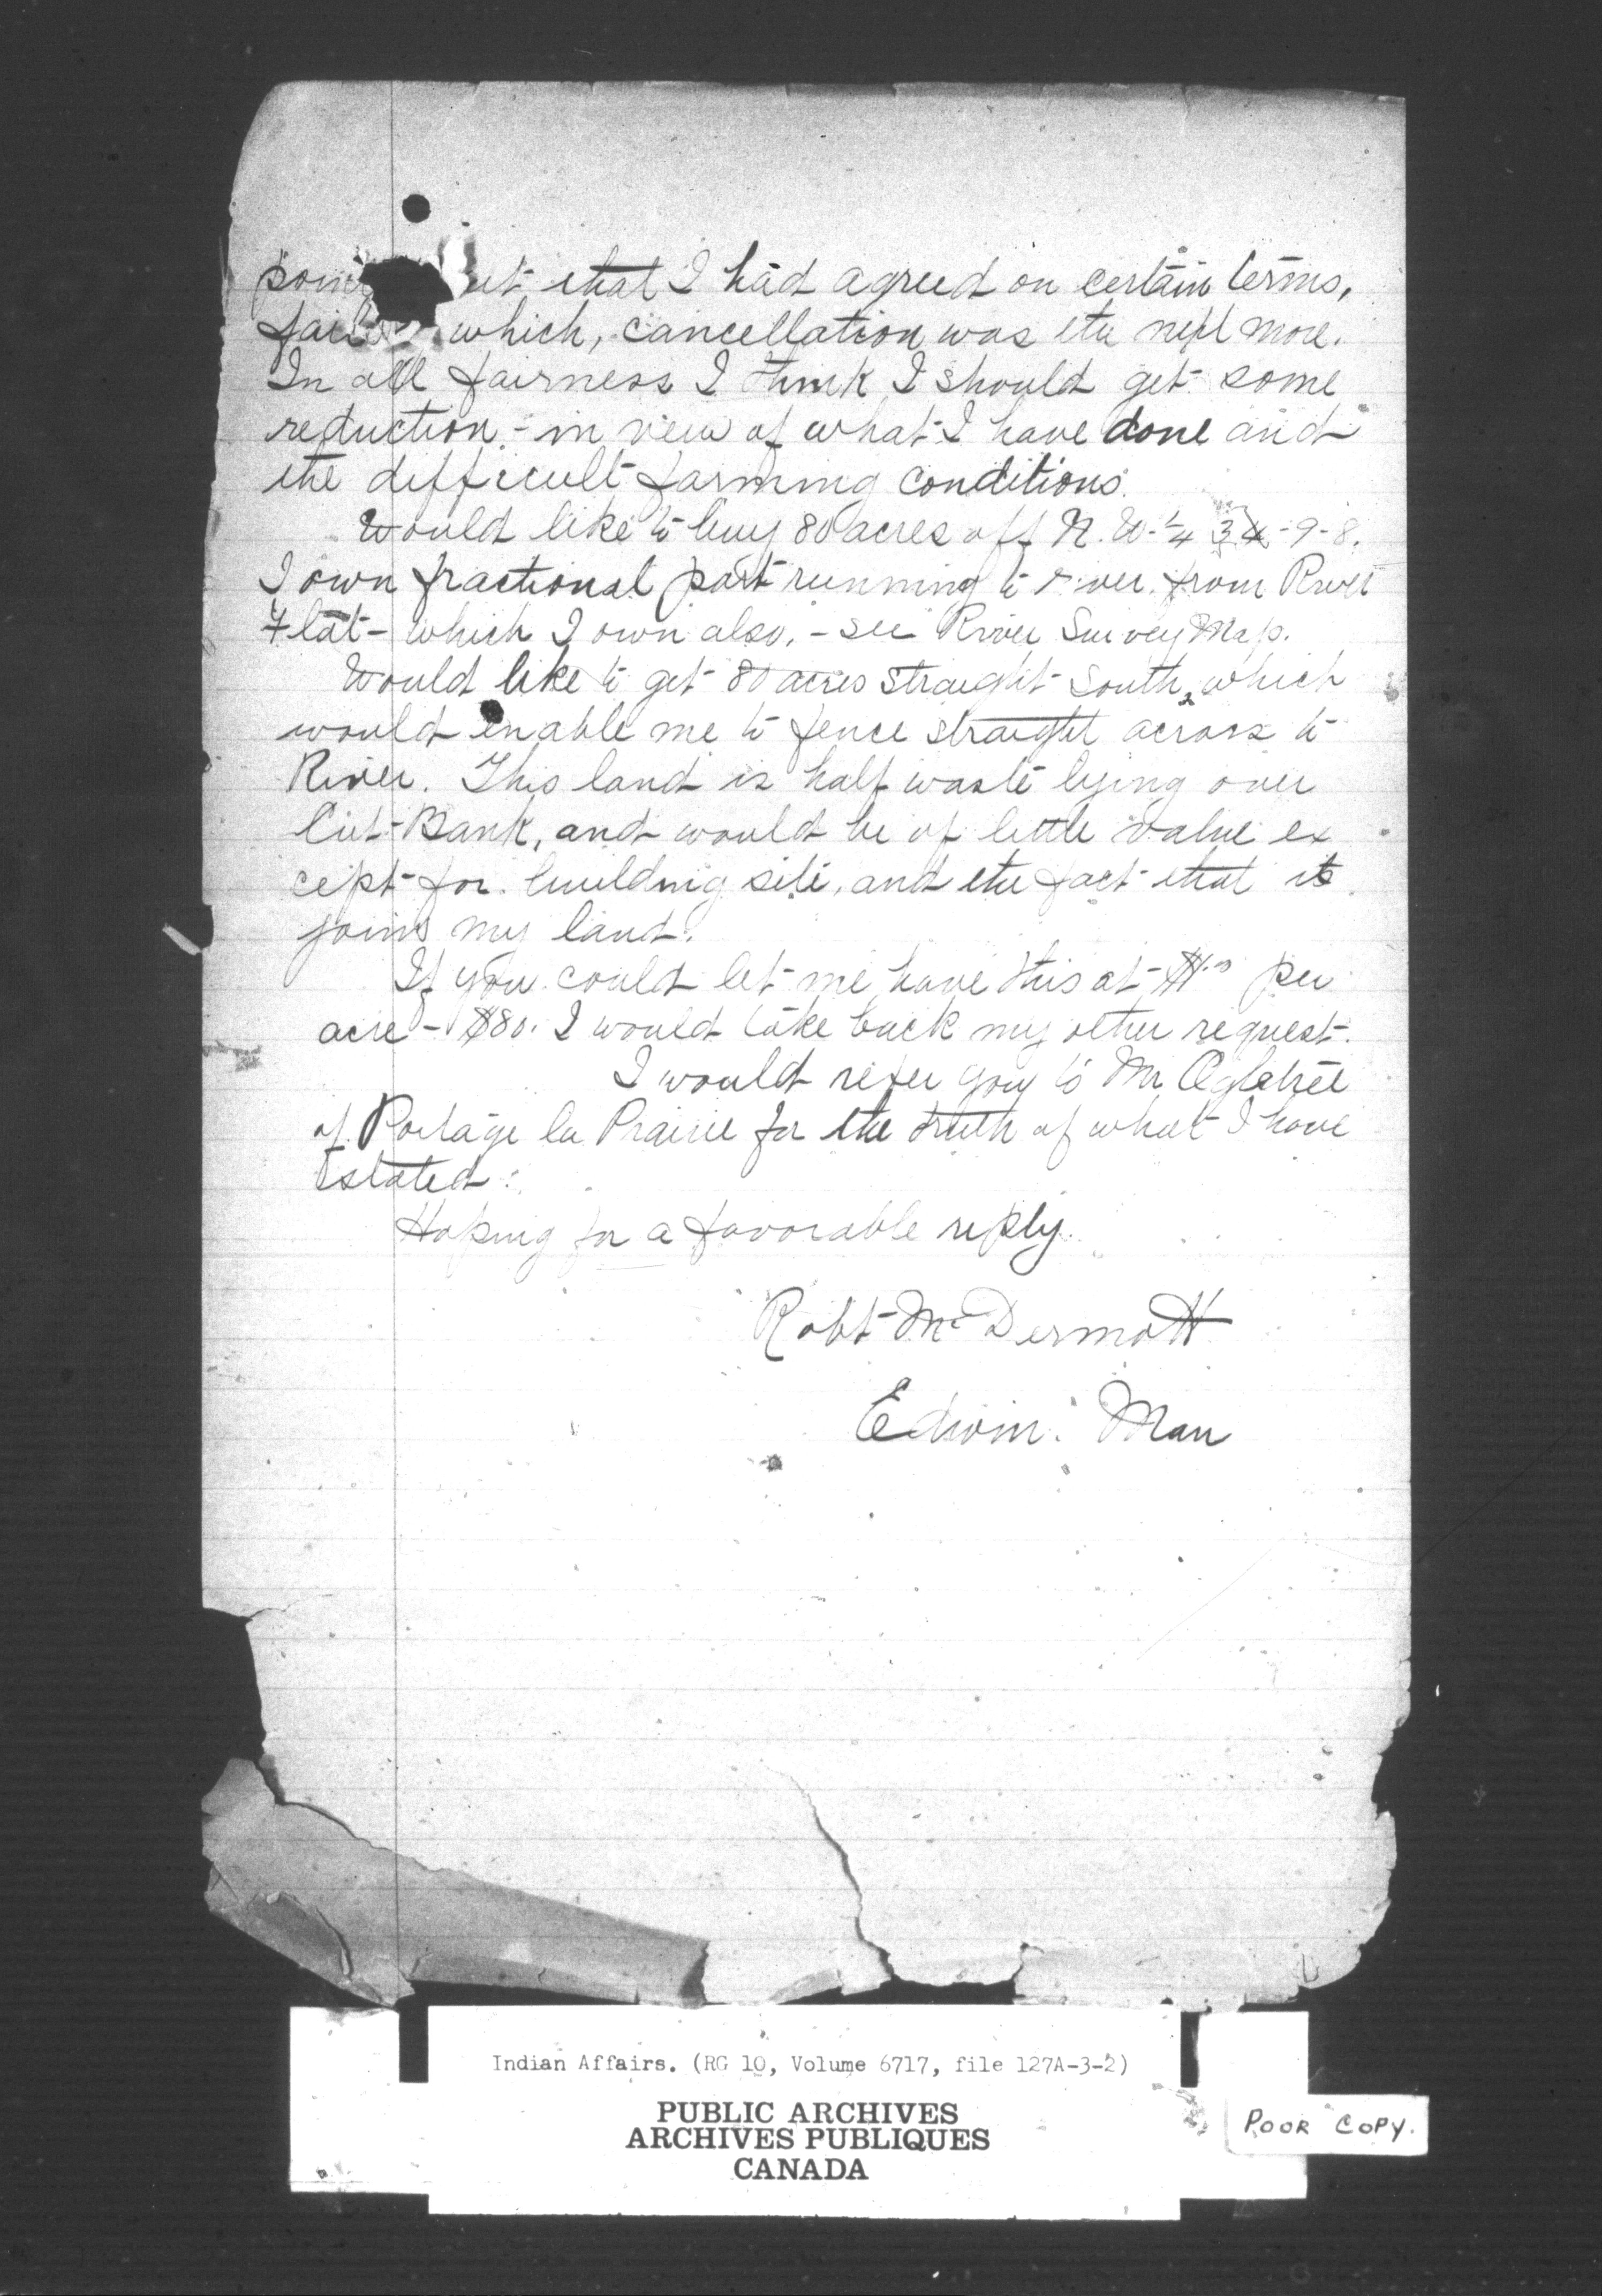 out that I had agreed on certain terms,
which, cancellation was the next move.
In all fairness I think I should get some
reduction - in view of what I have done and
the difficult farming conditions.
Would like to buy 80 acres off N.W. 1/4 34-9-8.
I own fractional part running to river from River
Flat - which I own also, - see River Survey Map.
Would like to get 80 acres straight South, which
would enable me to fence straight across to
River. This land is half waste lying over
Cut-Bank, and would be of little value ex
cept for building site, and the fact that it
joins my land.
If you could let me have this at $1.00 per
acre - $80. I would take back my other request.
I would refer you to Mr Ogletree
of Portage la Prairie for the truth of what I have
stated:
Hoping for a favorable reply.
Robt McDermott
Edwin. Man
Indian Affairs. (RG 10, Volume 6717, file 127A-3-2)
PUBLIC ARCHIVES
ARCHIVES PUBLIQUES
CANADA
POOR COPY.